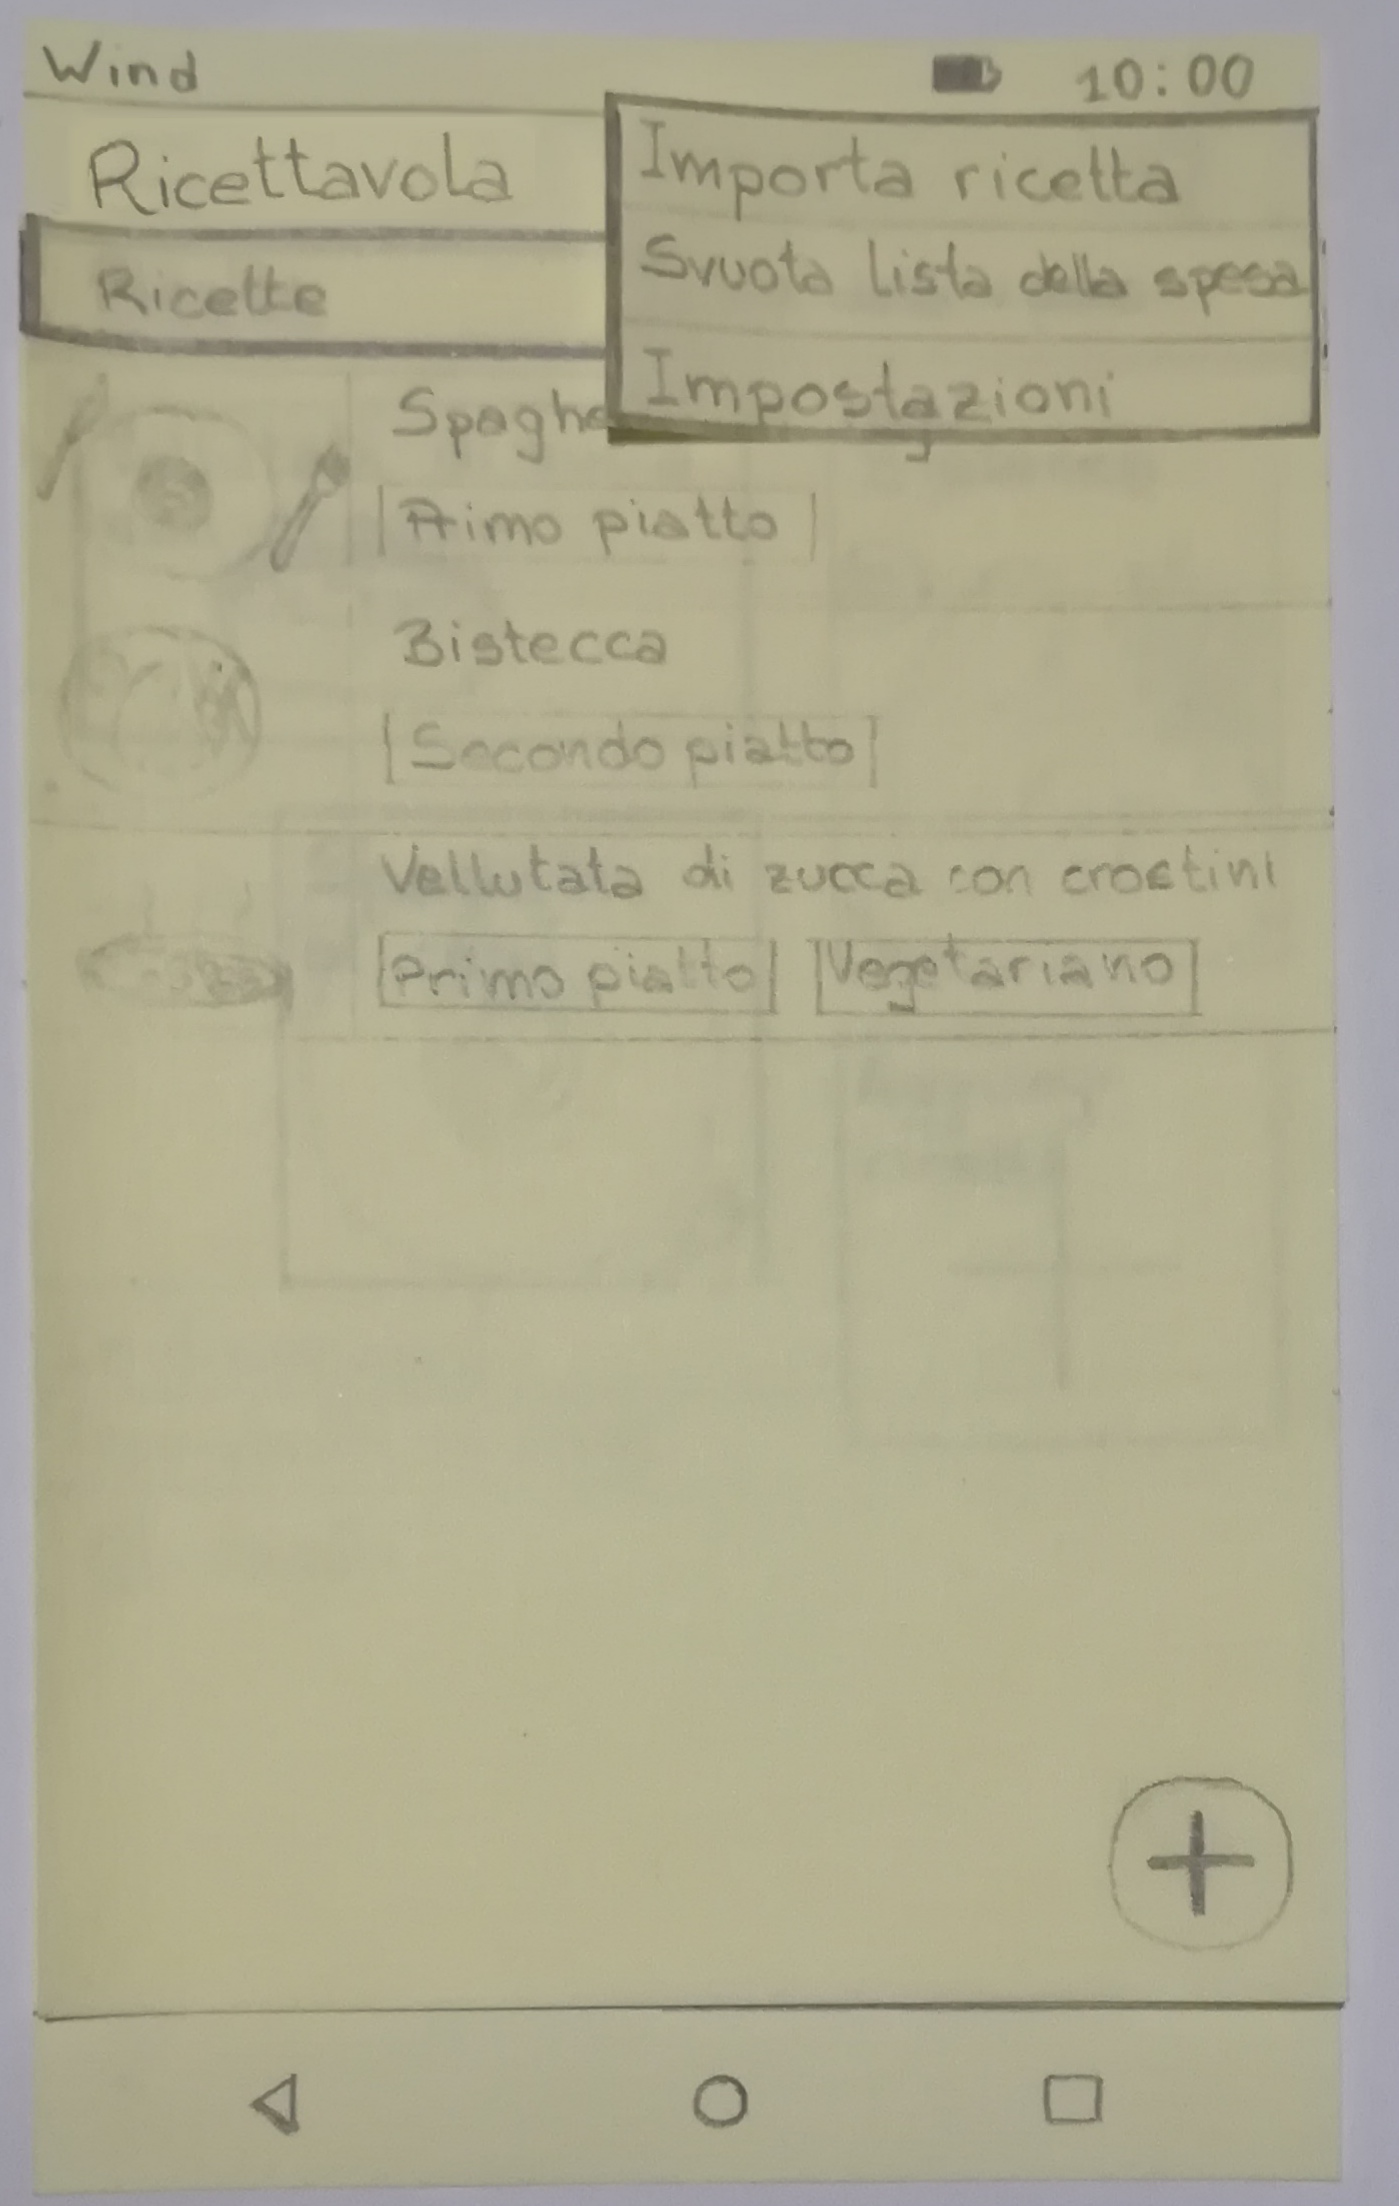 Wind 10:00
Ricettavola
Importa ricetta
Svuota lista della spesa
Impostazioni
Ricette
Spaghe
Primo piatto
Bistecca
Secondo piatto
Vellutata di zucca con crostini
Primo piatto Vegetariano